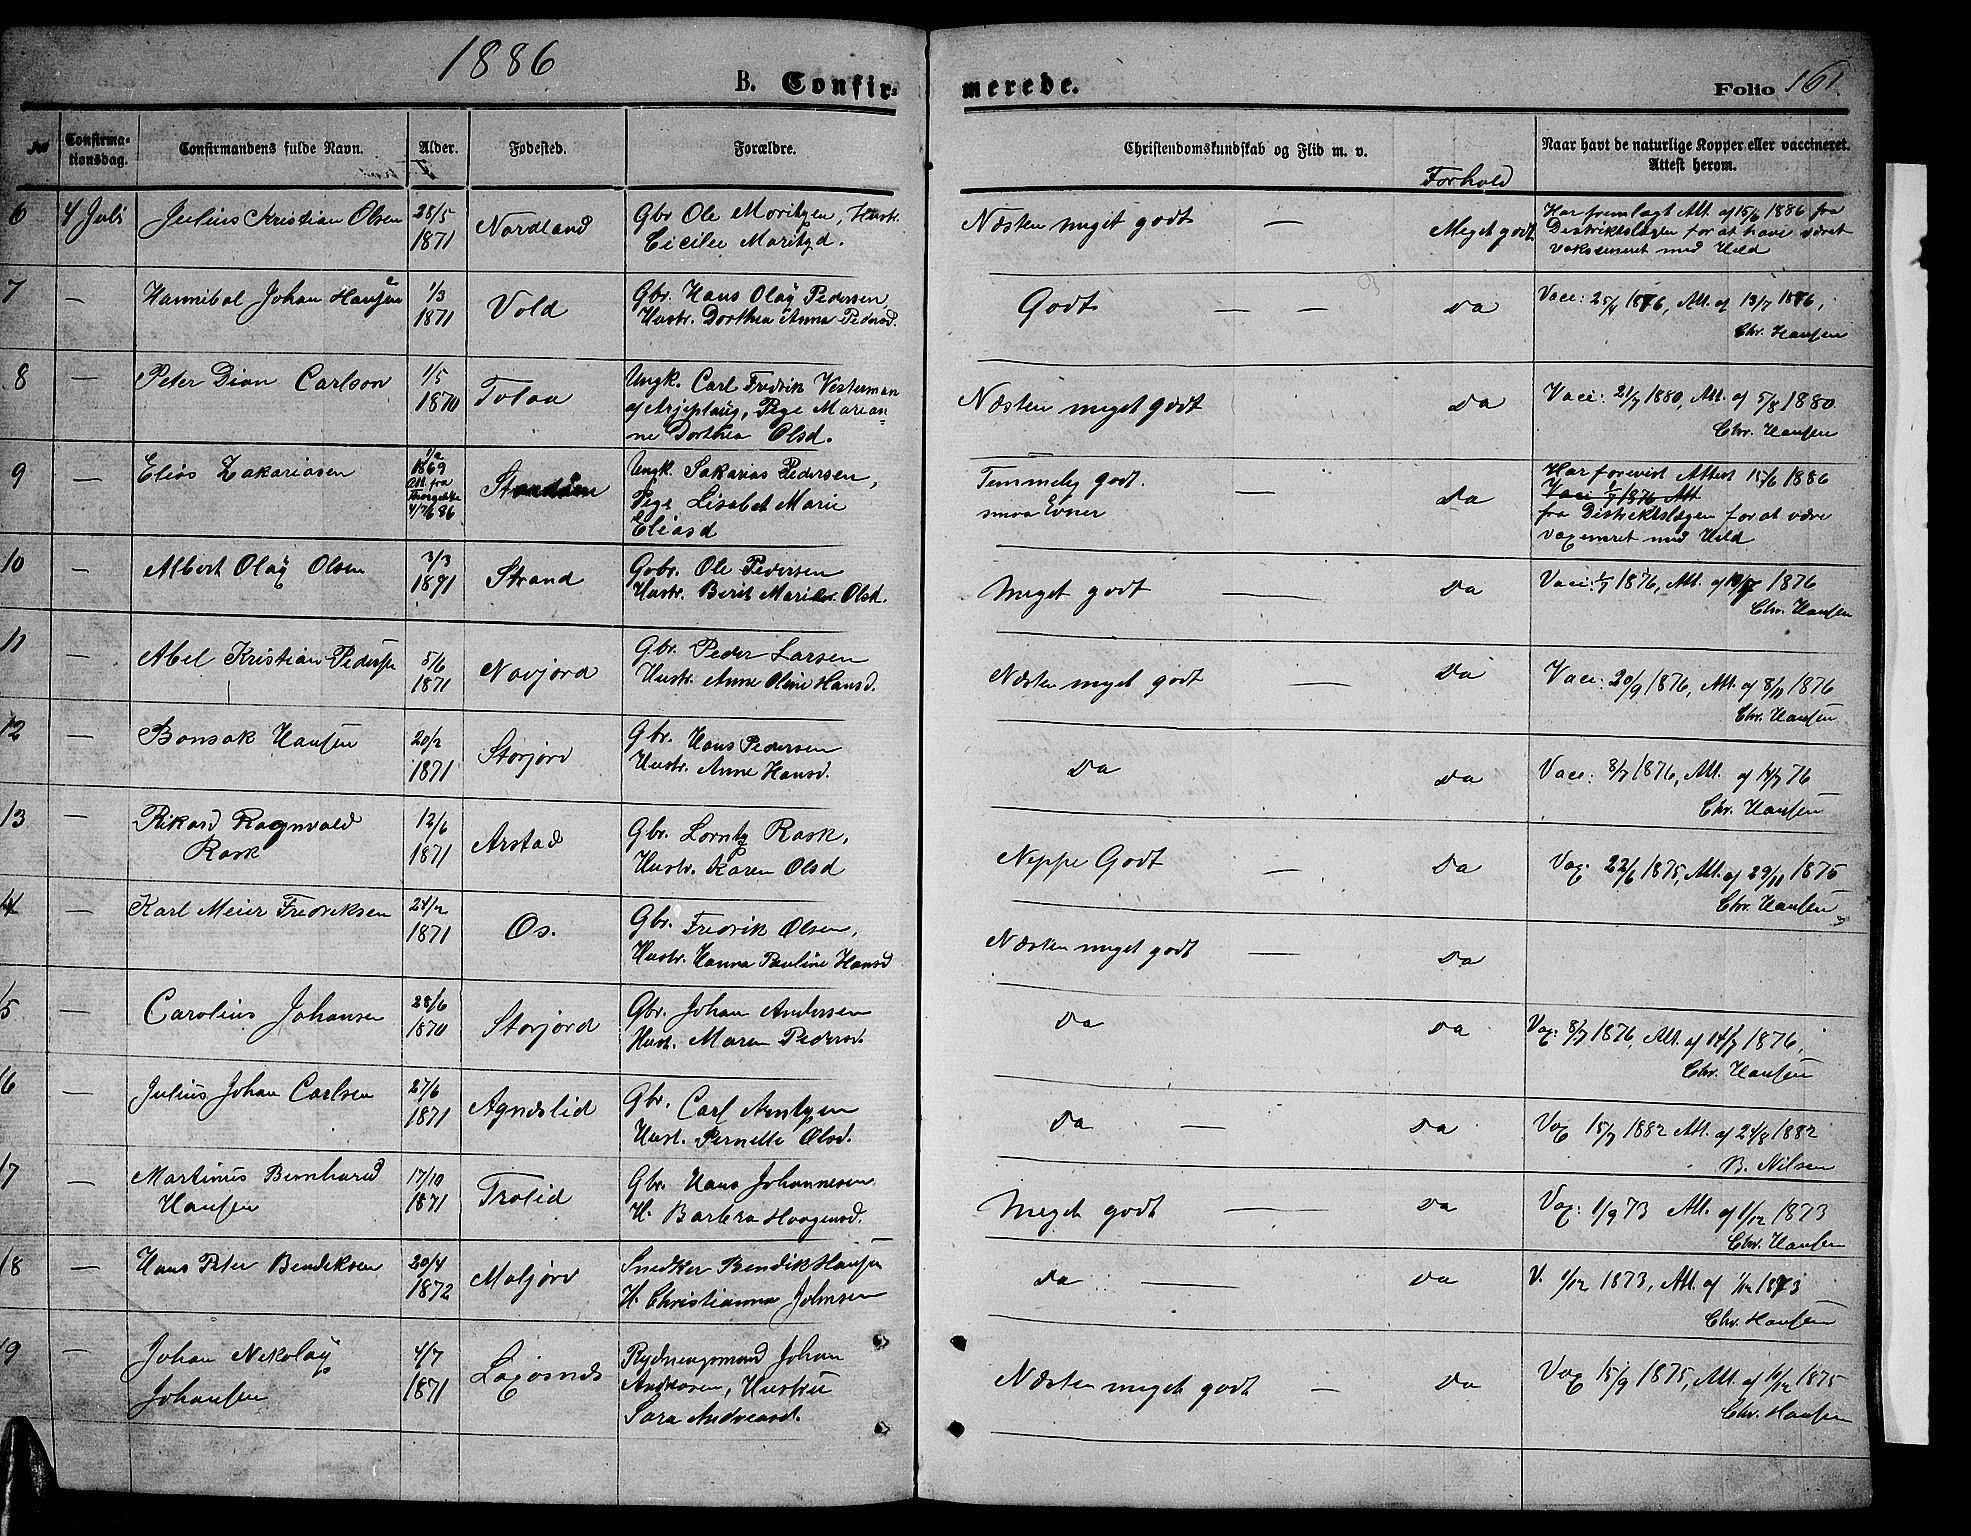 1886
B. Confirmerede.
Folio 161.
No Confirmationsdag. Confirmandens fulde Navn. Alder. Fødested. Forældre. Christendomskundskab og Flid m. v. Forhold Naar havt de naturlige Kopper eller vaccineret. Attest herom.
6 4 Juli Julius Kristian Olsen 28/5 1871 Nordland
Gbr Ole Moritzen, Hustr.
Cicilie Moritzd.
Næsten meget godt — Meget godt
Har fremlagt Att. af 15/6 1886 fra
Distriktslægen for at have været
vaksineret med Held
7 — Hannibal Johan Hansen 1/3 1871 Vold
Gbr. Hans Olaÿ Pedersen,
Hustr. Dorthea Anna Pedersd.
Godt — — Da
Vacc: 25/4 1876, Att. af 13/7 1876,
Chr. Hansen
8 — Peter Dian Carlson 1/5 1870 Tolaa
Ungk. Carl Fredrik Vesterman
af Arjeplaug, Pige Marian=
ne Dorthea Olsd.
Næsten meget godt — Da
Vacc: 21/7 1880, Att. af 5/8 1880
Chr. Hansen
9 Elias Zakariasen
1869
Att. fra
4/7 86
Ungk. Sakarias Pedersen,
Pige Lisabet Marie
Eliasd
Temmelig godt. — Da
smaa Evner
Har forevist Attest 15/6 1886
Vacc 1/7 1876 Att
fra Distriktslægen for at være
vaxineret med Held
10 — Albert Olaÿ Olsen 3/3 1871 Strand
Gbr. Ole Pedersen
Hustr. Berit Marie Olsd.
Meget godt — Da
Vacc: 1/7 1876, Att. af 1876
Chr. Hansen
11 — Abel Kristian Pedersen 5/6 1871 Navjord
Gbr. Peder Larsen
Hustr. Anne Oline Hansd.
Næsten meget godt — Da
Vacc: 20/9 1876, Att. af 8/11 1876
Chr. Hansen
12 — Bonsak Hansen 20/2 1871 Storjord
Gbr. Hans Pedersen
Hustr. Anne Hansd.
Da Da
Vacc: 8/7 1876, Att. af 14/7 76
Chr. Hansen
13 — Rikard Ragnvald
Rask 12/6 1871 Arstad
Gbr. Lorntz Rask,
Hustr. Karen Olsd
Neppe Godt — Da
Vax. 22/6 1875, Att. af 29/11 1875
Chr. Hansen
14 — Karl Meier Fredriksen 24/2 1871 Os.
Gbr. Fredrik Olsen,
Hustr. Hanna Pauline Hansd
Næsten meget godt — Da
15 — Carolius Johansen 28/6 1870 Storjord
Gbr. Johan Andersen
Hust. Maren Pedersd.
Da Da
Vax: 8/7 1876, Att. af 14/7 1876,
Chr. Hansen
16 — Julius Johan Carlsen 27/6 1871 Agneslid
Gbr. Carl Arntzen
Hust. Pernelle Olsd.
Da — Da
Vax 15/7 1882 Att. af 24/8 1882
B. Nilsen
17 — Martinus Bernhard
Hansen 17/10 1871 Trolid
Gbr. Hans Johannesen
H. Barbra Haagensd.
Meget godt — Da
Vax: 1/9 73 Att. af 1/12 1873
Chr. Hansen
18 — Hans Peter Bendiksen 20/4 1872 Moljord
Snedker Bendik Hansen
H. Christianna Johnsen
Da — Da
V. 1/12 1873, Att. af 1/12 1873
Chr. Hansen
19 — Johan Nikolaÿ
Johansen 4/7 1871
Rydningsmand Johan
Andreasen, Hustru
Sara Andreasd.
Næsten meget godt — Da
Vax 15/9 1875, Att. af 10/12 1875
Chr. Hansen